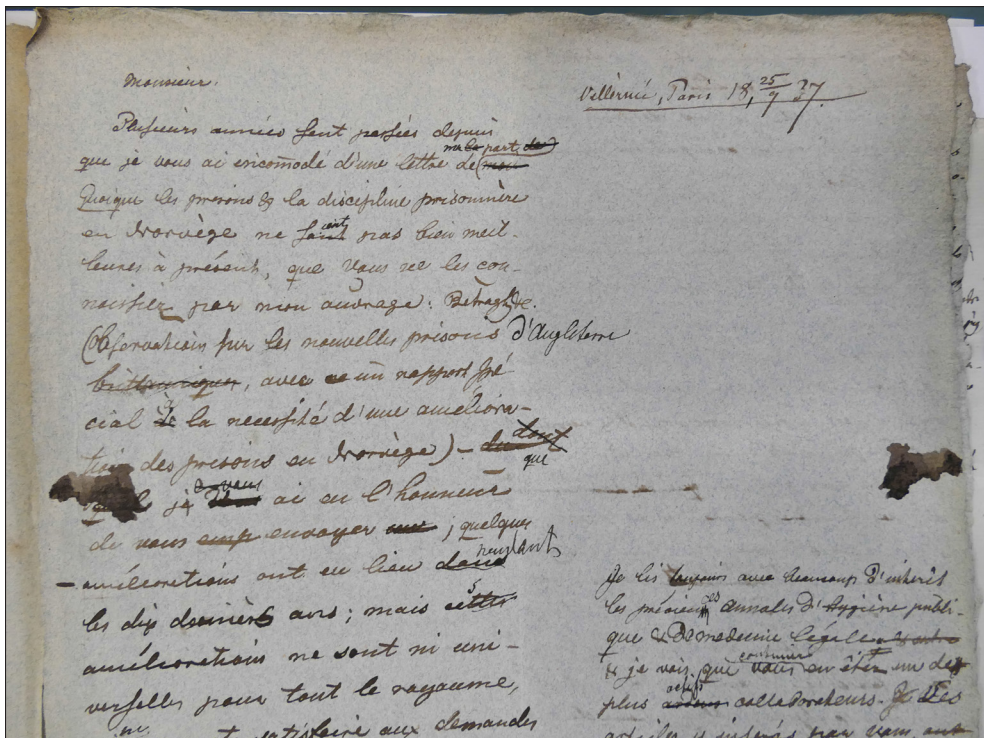 Monsieur.
Villèrmé, Paris 18, 25/9 37.
Plusieurs années sont passées depuis
que je vous ai incom̄odé d'une lettre de ma part de
Quoique les prisons & la discipline prisonnière
en Norvège ne soient pas bien meil-
leures à présent, que vous ne les con-
naissiez par mon ouvrage: Betragt. &c.
(Observations sur les nouvelles prisons d'Angleterre
brittaniques, avec un rapport spé
cial à la necessité d'une améliora-
tion des prisons en Norvège) - du dont
que
je vous ai eu l'honneur
de vous envoyer ; quelques
améliorations ont eu lieu dans pendant
les dix dernières ans; mais cettes
améliorations ne sont ni uni-
verselles pour tout le royaume,
ni satisfaire aux demandes
Je lis toujours avec beaucoup d'interêt
les précieuses Annales d'hygiène publi-
que & De medecine légale
& je vois, que vous en êtes un des
plus actifs collaborateurs. Les
articles, insérés par vous, ont